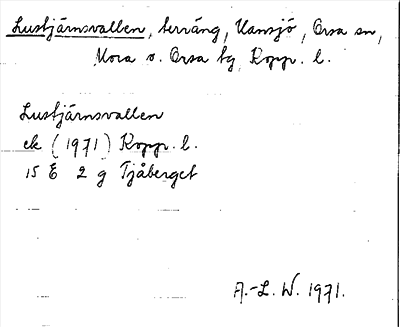 Lustjärnsvallen, terräng, Hansjö, Orsa sn,
Mora o. Orsa tg Kopp. l.
Lustjärnsvallen
ek (1971) Kopp. l.
15 E 2 g Tjåberget
A.-L. W. 1971.